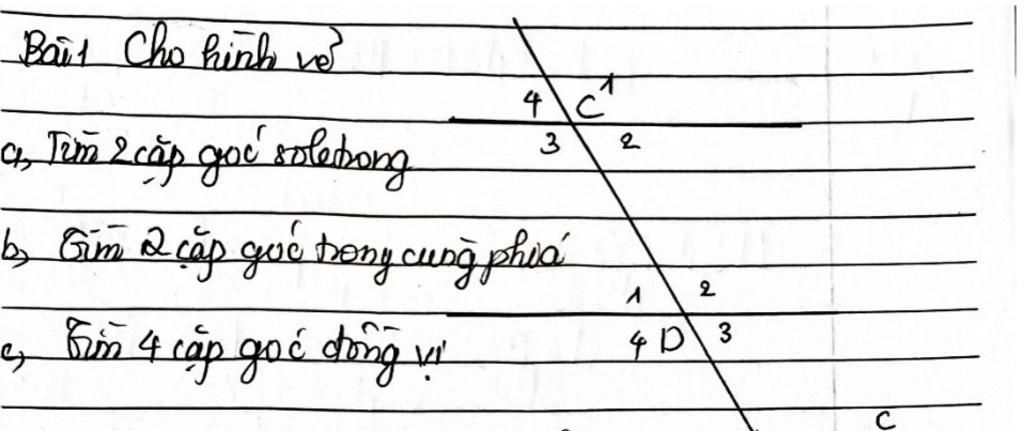 Bài 1 Cho hình vẽ
a, Tìm 2 cặp góc so le trong
b, Tìm 2 cặp góc trong cùng phía
c, Tìm 4 cặp góc đồng vị
4 C 1
3 2
1 2
4 D 3
c